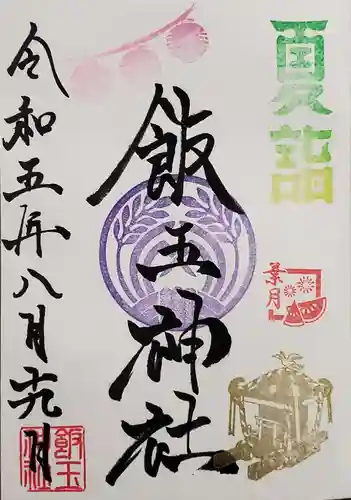 夏詣
葉月
飯玉神社
令和五年八月十九日
飯玉